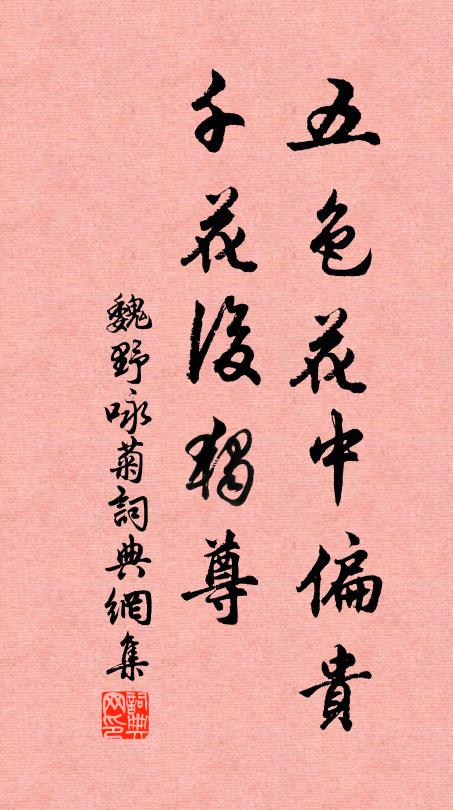 五色花中偏貴
千花後獨尊
魏野咏菊詞典網集
詞典网印